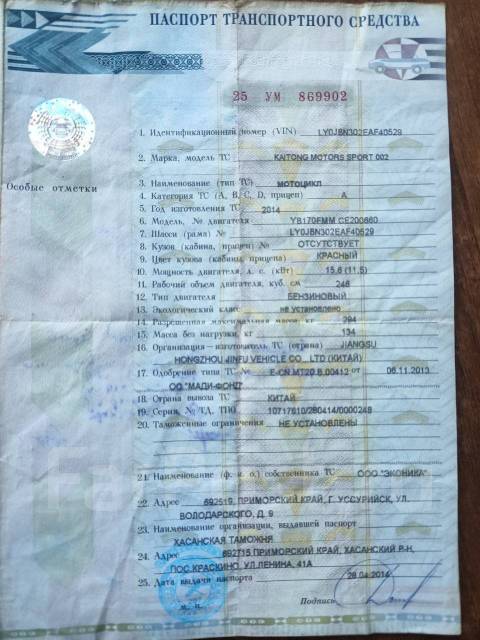 ПАСПОРТ ТРАНСПОРТНОГО СРЕДСТВА
25 УМ 869902
Особые отметки
1. Идентификационный номер (VIN) LY0JBN302EAF40529
2. Марка, модель ТС KAITONG MOTORS SPORT 002
3. Наименование (тип ТС) МОТОЦИКЛ
4. Категория ТС (A, B, C, D, прицеп) A
5. Год изготовления ТС 2014
6. Модель, № двигателя YB170FMM CE200660
7. Шасси (рама) № LY0JBN302EAF40529
8. Кузов (кабина, прицеп) № ОТСУТСТВУЕТ
9. Цвет кузова (кабины, прицепа) КРАСНЫЙ
10. Мощность двигателя, л. с. (кВт) 15.6 (11.5)
11. Рабочий объем двигателя, куб. см 246
12. Тип двигателя БЕНЗИНОВЫЙ
13. Экологический класс не установлено
14. Разрешенная максимальная масса, кг 294
15. Масса без нагрузки, кг 134
16. Организация – изготовитель ТС (страна) JIANGSU
HONGZHOU JINFU VEHICLE CO., LTD (КИТАЙ)
17. Одобрение типа ТС № E-CN.МТ20.В.00412 от 06.11.2013
ОС "МАДИ-ФОНД"
18. Страна вывоза ТС КИТАЙ
19. Серия, № ТД, ТПО 10717010/280414/0000248
20. Таможенные ограничения НЕ УСТАНОВЛЕНЫ
21. Наименование (ф. и. о.) собственника ТС ООО "ЭКОНИКА"
22. Адрес 692519, ПРИМОРСКИЙ КРАЙ, Г. УССУРИЙСК, УЛ.
ВОЛОДАРСКОГО, Д. 9
23. Наименование организации, выдавшей паспорт
ХАСАНСКАЯ ТАМОЖНЯ
24. Адрес 692715 ПРИМОРСКИЙ КРАЙ, ХАСАНСКИЙ Р-Н,
ПОС.КРАСКИНО, УЛ.ЛЕНИНА, 41А
25. Дата выдачи паспорта 28.04.2014
М. П. Подпись